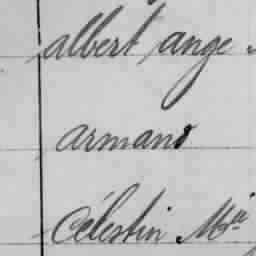 albert ange
armand
Célestin Mie